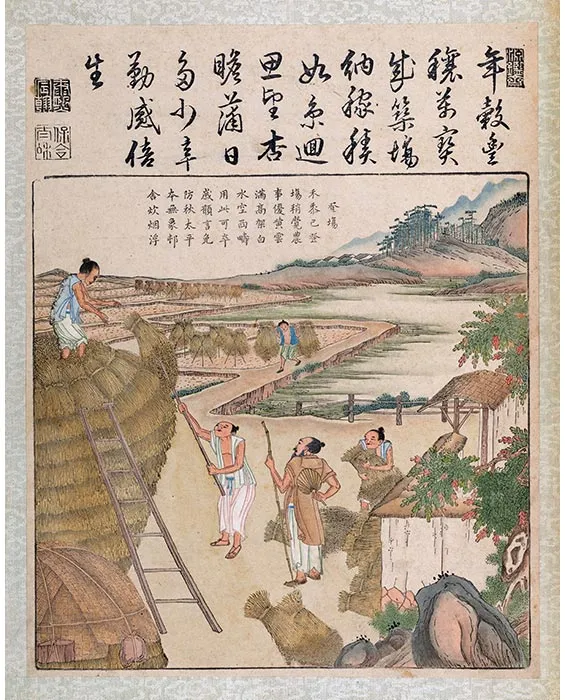 年穀豐
穰萬寶
成築場
納稼積
如京迴
思望杏
瞻蒲日
多少辛
勤感倍
生
康熙宸翰
保合太和
登場
禾黍已登
場稍覺農
事優黃雲
滿高架白
水空西疇
用此可卒
歲願言免
防秋太平
本無象村
舍炊烟浮